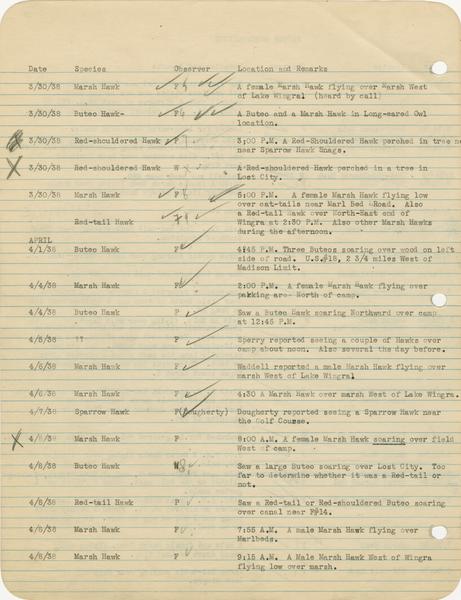 Date Species Observer Location and Remarks
3/30/38 Marsh Hawk F A female Marsh Hawk flying over Marsh West
of Lake Wingral (heard by call)
3/30/38 Buteo Hawk- F A Buteo and a Marsh Hawk in Long-eared Owl
location.
3/30/38 Red-shouldered Hawk F 3:00 P.M. A Red-Shouldered Hawk perched in tree ne
near Sparrow Hawk Snags.
3/30/38 Red-shouldered Hawk W A Red-shouldered Hawk perched in a tree in
Lost City.
3/30/38 Marsh Hawk F 5:00 P.M. A female Marsh Hawk flying low
over cat-tails near Marl Bed Road. Also
Red-tail Hawk a Red-tail Hawk over North-East end of
Wingra at 2:30 P.M. Also other Marsh Hawks
during the afternoon.
APRIL
4/1/38 Buteo Hawk F 4:45 P.M. Three Buteos soaring over wood on left
side of road. U.S.#18, 2 3/4 miles West of
Madison Limit.
4/4/38 Marsh Hawk F 2:00 P.M. A female Marsh Hawk flying over
parking are- North of camp.
4/4/38 Buteo Hawk P Saw a Buteo Hawk soaring Northward over camp
at 12:45 P.M.
4/5/38 ?? F Sperry reported seeing a couple of Hawks over
camp about noon. Also several the day before.
4/5/38 Marsh Hawk F Waddell reported a male Marsh Hawk flying over
marsh West of Lake Wingral
4/6/38 Marsh Hawk F 4:30 A Marsh Hawk over marsh West of Lake Wingra.
4/7/38 Sparrow Hawk F(Dougherty) Dougherty reported seeing a Sparrow Hawk near
the Golf Course.
4/8/38 Marsh Hawk F 8:00 A.M. A female Marsh Hawk soaring over field
West of camp.
4/8/38 Buteo Hawk W Saw a large Buteo soaring over Lost City. Too
far to determine whether it was a Red-tail or
not.
4/8/38 Red-tail Hawk P Saw a Red-tail or Red-shouldered Buteo soaring
over canal near F#14.
4/8/38 Marsh Hawk F 7:55 A.M. A male Marsh Hawk flying over
Marlbeds.
4/8/38 Marsh Hawk F 9:15 A.M. A Male Marsh Hawk West of Wingra
flying low over marsh.